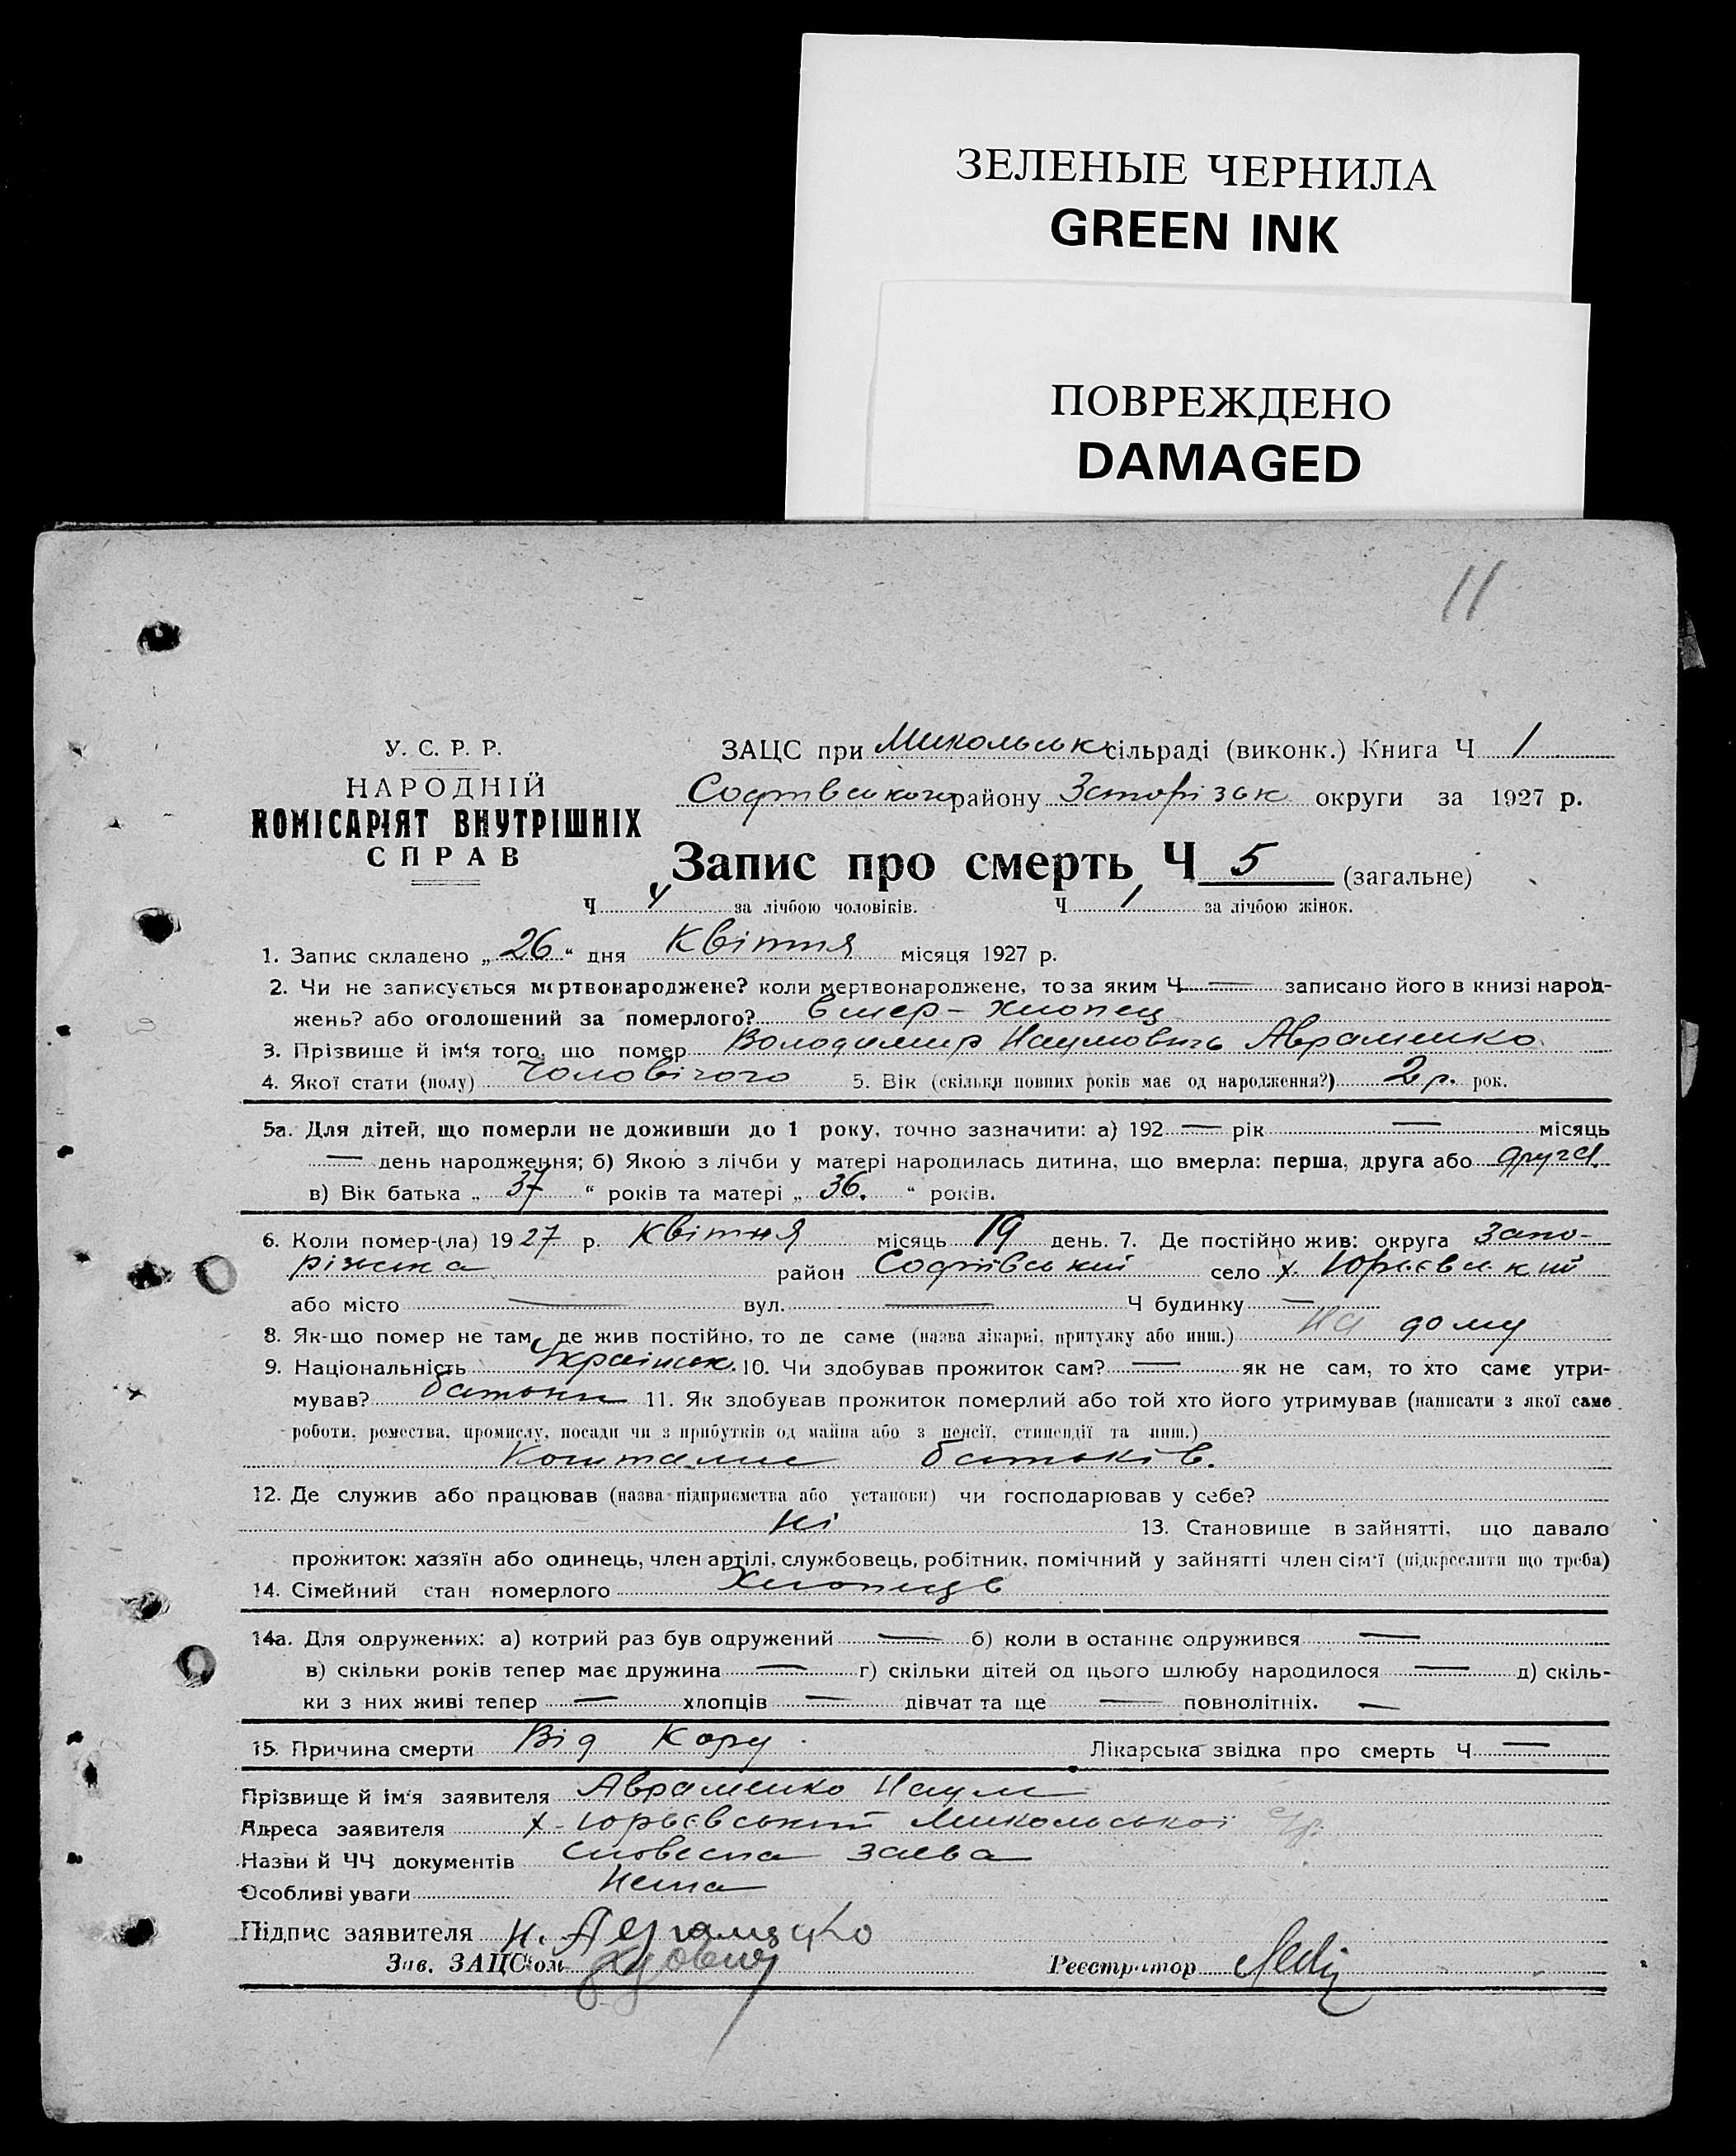 ЗЕЛЕНЫЕ ЧЕРНИЛА
GREEN INK
ПОВРЕЖДЕНО
DAMAGED
11
У. С. Р. Р.
НАРОДНІЙ
КОМІСАРІЯТ ВНУТРІШНІХ
СПРАВ
ЗАЦС при Микольськ сільраді (виконк.) Книга Ч 1
Софіївського району округи за 1927 р.
Запис про смерть Ч 5 (загальне)
Ч 4 за лічбою чоловіків. Ч 1 за лічбою жінок.
1. Запис складено „ 26 “ дня Квітня місяця 1927 р.
2. Чи не записується мертвонароджене? коли мертвонароджене, то за яким Ч — записано його в книзі народ-
жень? або оголошений за померлого? Вмер – хлопец
3. Прізвище й ім'я того, що помер Володимир Наумович Авраменко
4. Якої стати (полу) Чоловічого 5. Вік (скільки повних років має од народження?) 2 р. рок.
5а. Для дітей, що померли не доживши до 1 року, точно зазначити: а) 192 — рік — місяць
— день народження; б) Якою з лічби у матері народилась дитина, що вмерла: перша, друга або друга.
в) Вік батька „ 37 “ років та матері „ 36. “ років.
6. Коли помер-(ла) 1927 р. Квітня місяць 19 день. 7. Де постійно жив: округа Запо-
ріжська район Софіївський село х. Юрьєвський
або місто — вул. — Ч будинку —
8. Як-що помер не там, де жив постійно, то де саме (назва лікарні, притулку або инш.) на дому
9. Національність Українськ. 10. Чи здобував прожиток сам? — як не сам, то хто саме утри-
мував? батьки 11. Як здобував прожиток померлий або той хто його утримував (написати з якої саме
роботи, ремества, промислу, посади чи з прибутків од майна або з пенсії, стипендії та инш.)
Коштами батьків.
12. Де служив або працював (назва підприємства або установи) чи господарював у себе?
ні 13. Становище в зайнятті, що давало
прожиток: хазяїн або одинець, член артілі, службовець, робітник, помічний у зайнятті член сім'ї (підкреслити що треба)
14. Сімейний стан померлого
14а. Для одружених: а) котрий раз був одружений — б) коли в останнє одружився —
в) скільки років тепер має дружина — г) скільки дітей од цього шлюбу народилося — д) скіль-
ки з них живі тепер — хлопців — дівчат та ще — повнолітніх. —
15. Причина смерти Від Кору. Лікарська звідка про смерть Ч —
Прізвище й ім'я заявителя Авраменко Наум
Адреса заявителя х. Юрьєвський Микольської с/р.
Назви й ЧЧ документів Словесна заява
Особливі уваги Нема
Підпис заявителя Н. Авраменко
Зав. ЗАЦС'ом
Реєстратор